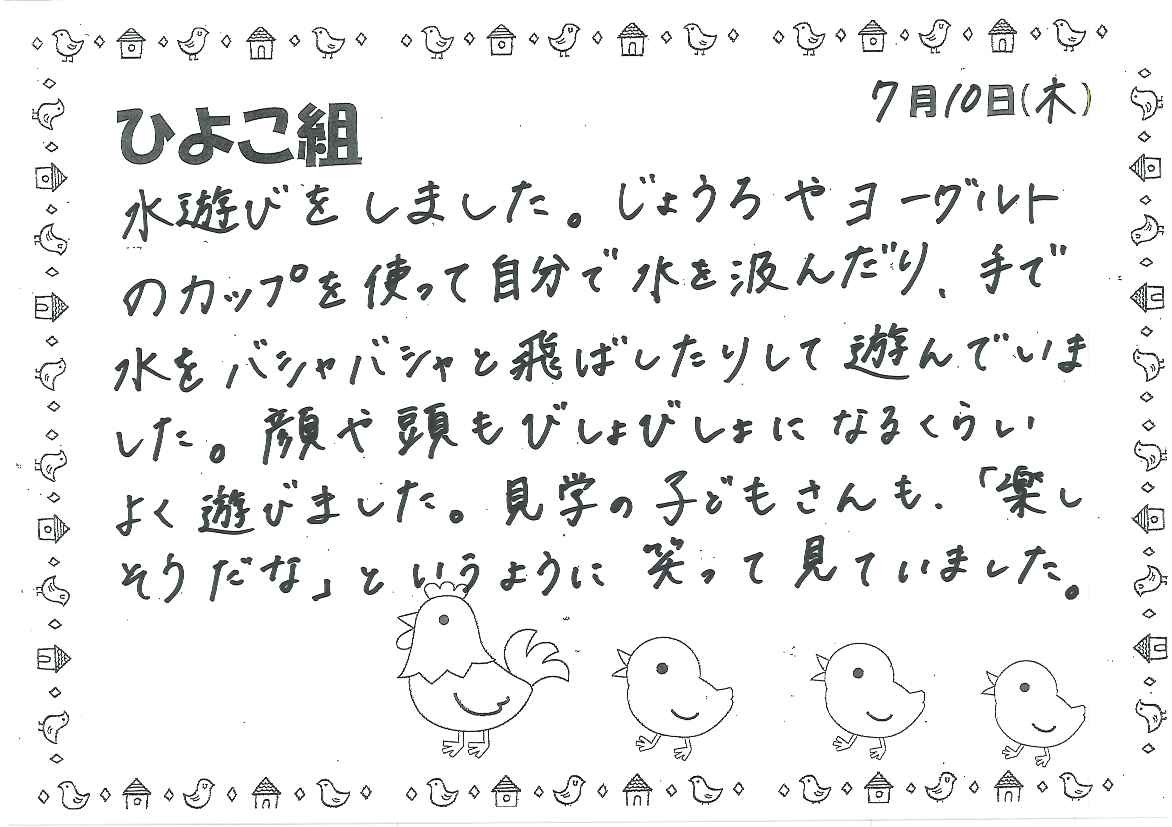 7月10日(木)
ひよこ組
水遊びをしました。じょうろやヨーグルト
のカップを使って自分で水を汲んだり、手で
水をバシャバシャと飛ばしたりして遊んでいま
した。顔や頭もびしょびしょになるくらい
よく遊びました。見学の子どもさんも、「楽し
そうだな」というように笑って見ていました。